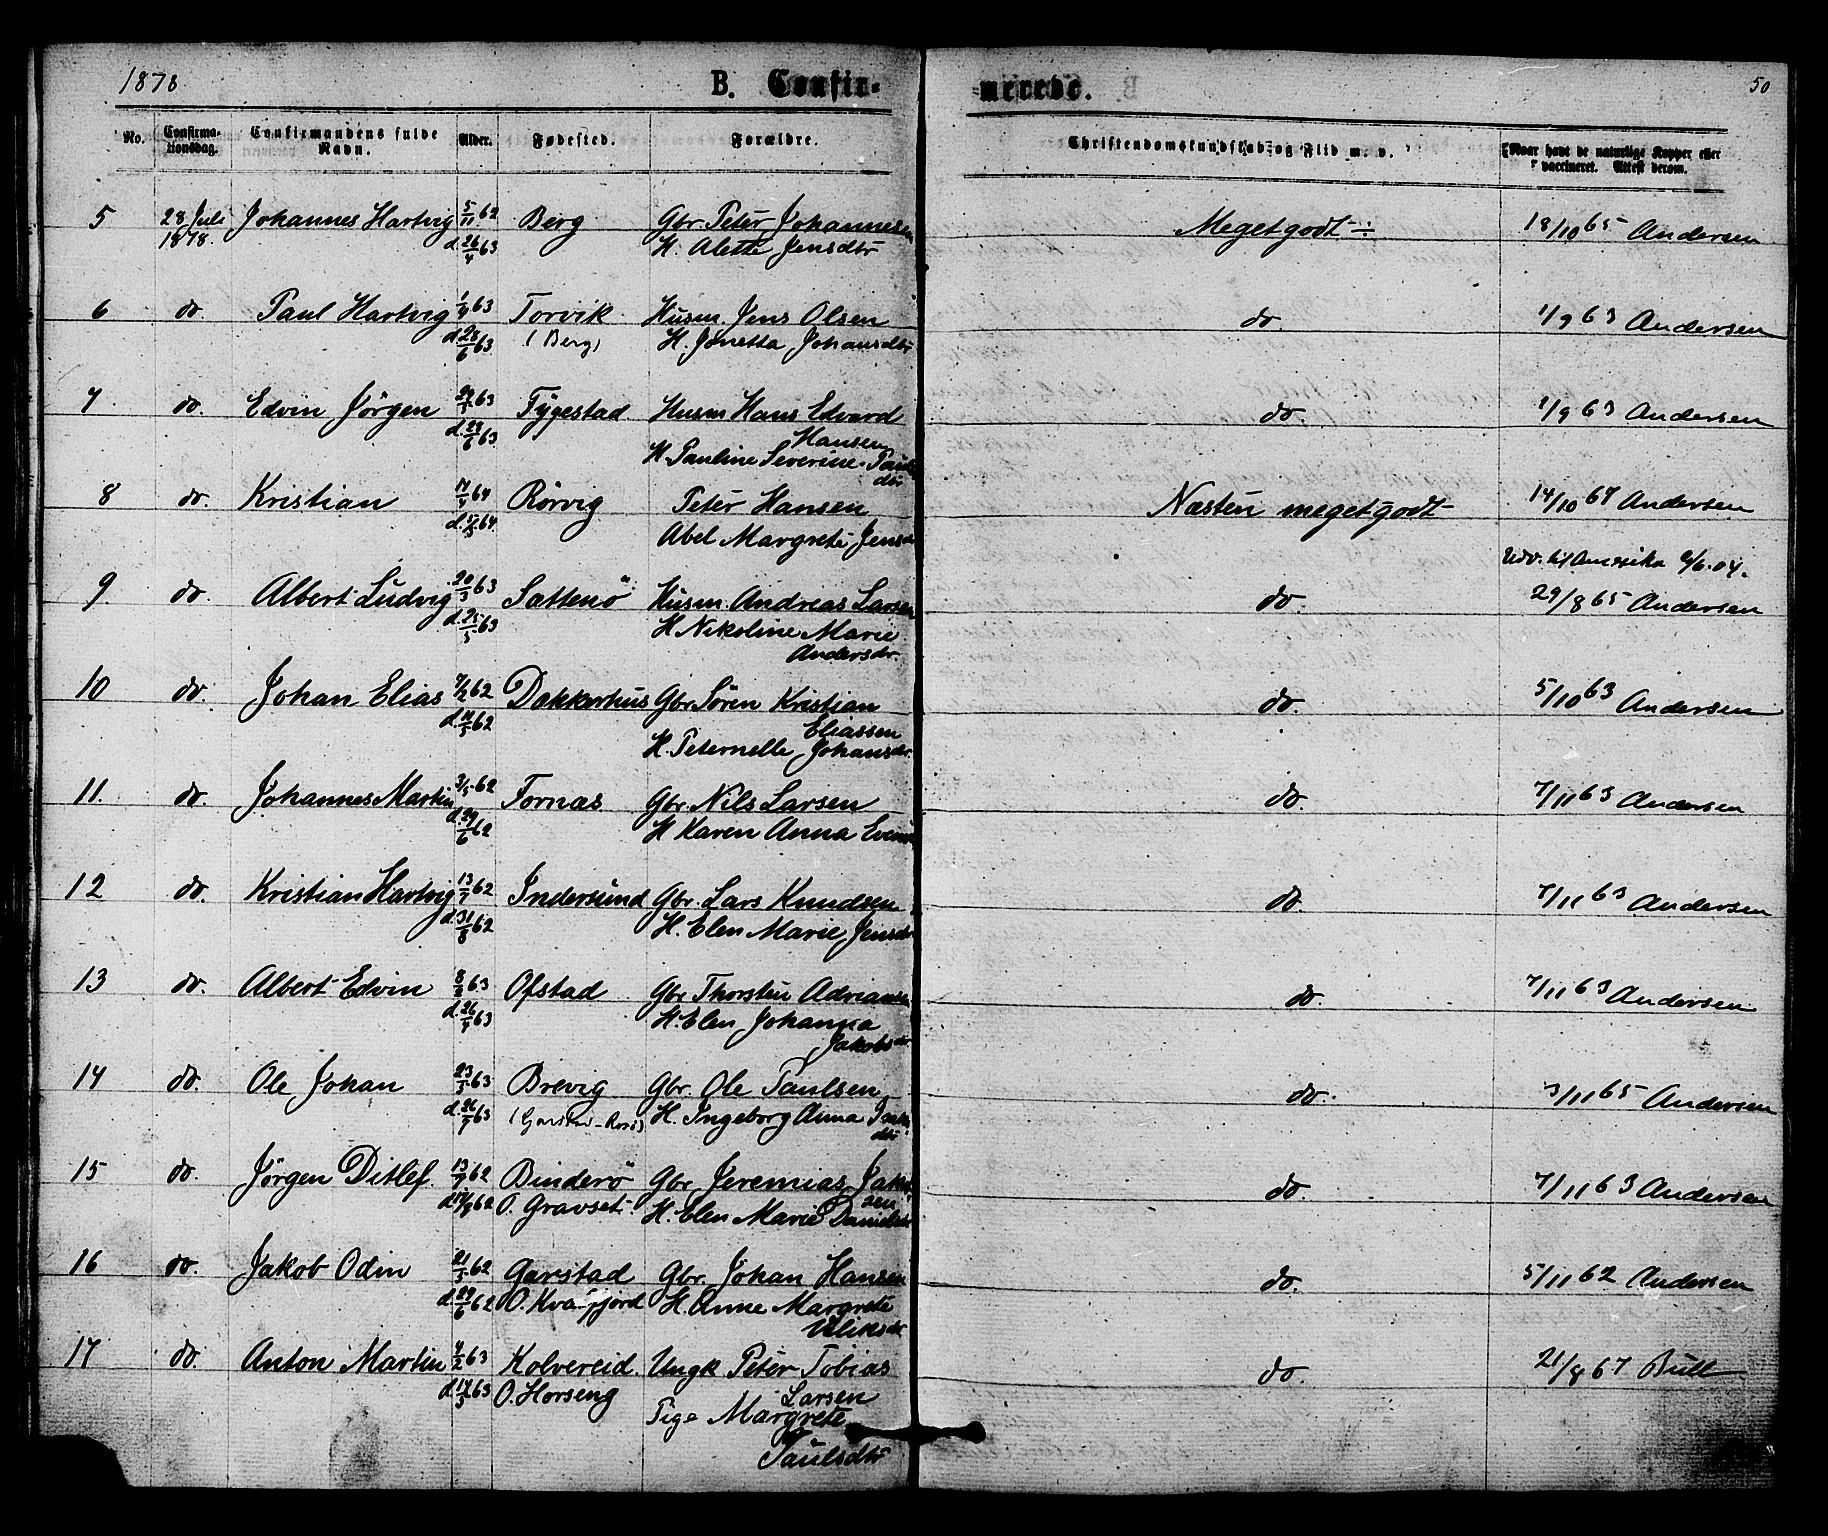 1878
B. Confir-
merede.
50
No.
Confirma-
tionsdag.
Confirmandens fulde
Navn.
Alder.
Fødested.
Forældre.
Christendomskundskab og Flid m. v.
Naar havt de naturlige Kopper eller
vaccineret. Attest derom.
5 28 Juli Johannes Hartvig 5/11 62 Berg Gbr. Peter Johannesen Meget godt 18/10 65 Andersen
1878. d. 26/4 63 H. Alette Jensdtr
6 do. Paul Hartvig 1/4 63 Torvik Husm. Jens Olsen do. 1/9 63 Andersen
d. 28/6 63 (Berg) H. Jonetta Johansdtr
7. do. Edvin Jörgen 63 Fygestad Husm Hans Edvard do. 1/9 63 Andersen
d. 63 Hansen
H. Pauline Severine Pauls
dtr
8 do. Kristian 64 Rörvig Peter Hansen Næsten meget godt 14/10 67 Andersen
d. 64. Abel Margrete Jensdr
Udv. til Amerika 04.
9. do. Albert Ludvig 20/3 63 Sattenö Husm. Andreas Larsen do. 29/8 65 Andersen
d. 25/5 63 H Nikoline Marie
Andersdr.
10 do. Johan Elias 7/2 62 Dakkerhus Gbr Sören Kristian do. 5/10 63 Andersen
d. 62 Eliassen
H. Peternelle Johansdr.
11. do. Johannes Martin 62 Fornæs Gbr. Nils Larsen do. 7/11 63 Andersen
d. 29/6 62 H Karen Anna
12 do. Kristian Hartvig 13/7 62 Indersund Gbr. Lars Knudsen do. 7/11 63 Andersen
d. 31/8 62 H. Elen Marie Jensdr
13 do. Albert Edvin 8/2 63 Ofstad Gbr Thorsten Adriansen do. 7/11 63 Andersen
d. 26/4 63 H. Elen Johanna
Jakobsdr
14 do. Ole Johan 23/5 63 Brevig Gbr. Ole Paulsen do. 3/11 65 Andersen
d. 26/7 63 H. Ingeborg Anna
dtr
15 do. Jörgen Ditlef. 13/7 62 Binderö Gbr. Jeremias Jakob do. 7/11 63 Andersen
d. 14/9 62 O. Gravset. sen
H. Elen Marie Danielsdr
16 do. Jakob Odin 21/5 62 Garstad Gbr. Johan Hansen do. 5/11 62 Andersen
d. 29/6 62 O. H. Anne Margrete
17 do. Anton Martin 4/2 63 Kolvereid. Ungk Peter Tobias do. 21/8 67 Bull
d. 63 O. Horseng Larsen
Pige Margrete
Paulsdtr